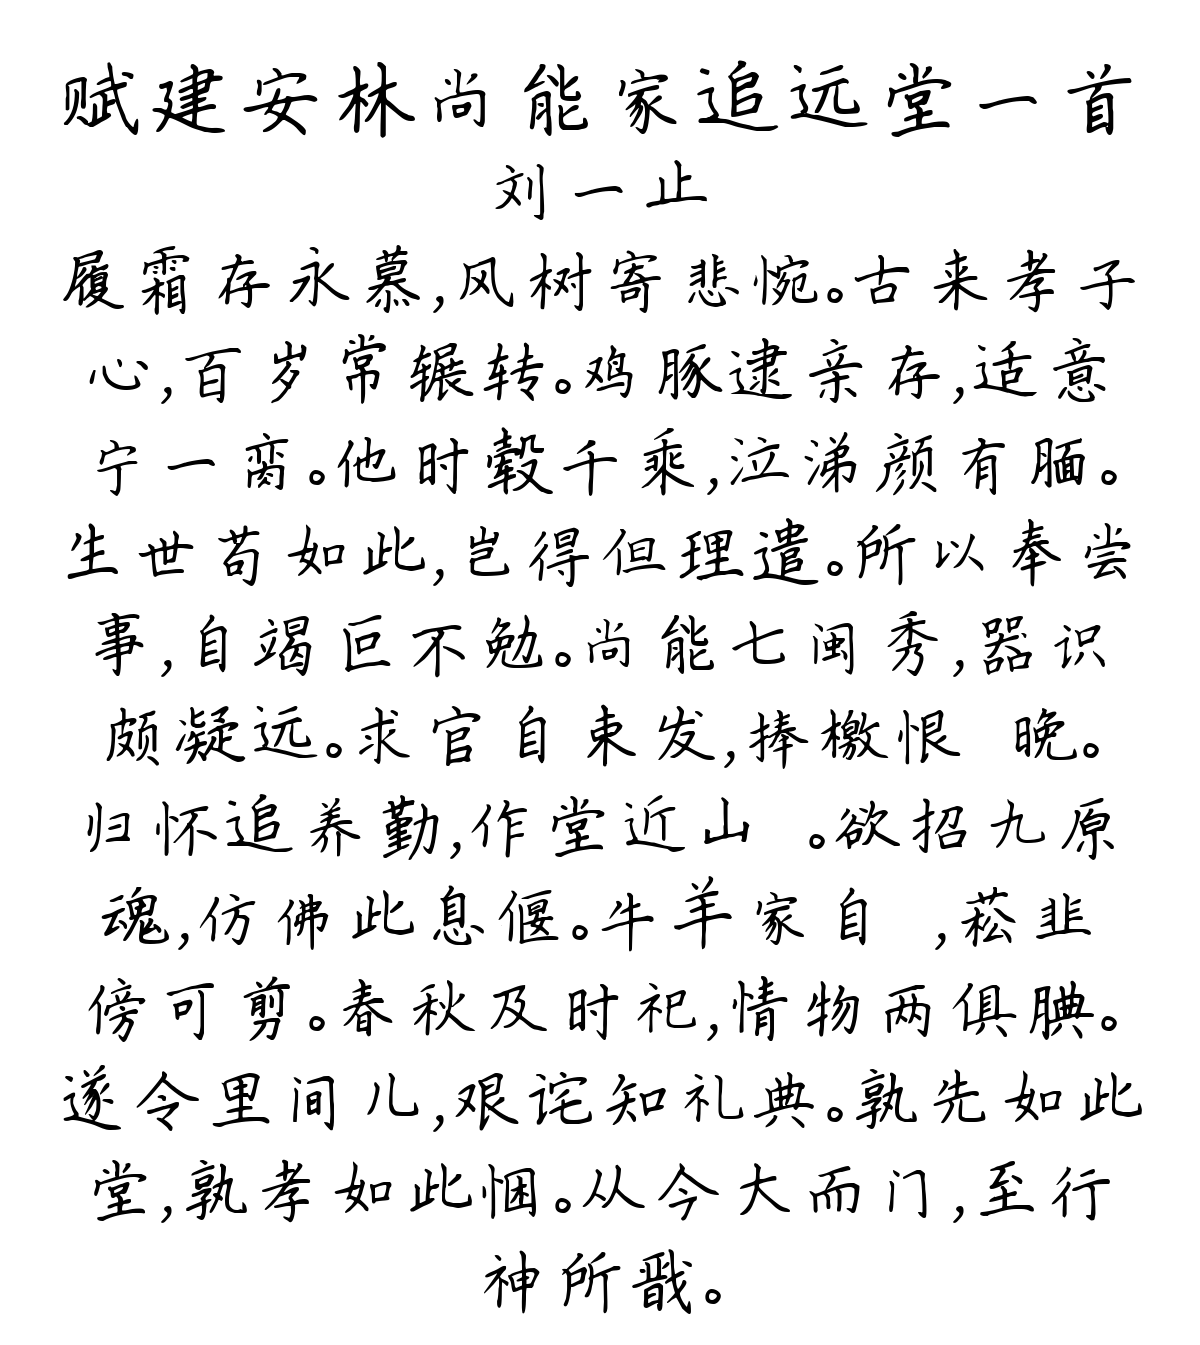 赋建安林尚能家追远堂一首
刘一止
履霜存永慕,风树寄悲惋。古来孝子
心,百岁常辗转。鸡豚逮亲存,适意
宁一脔。他时毂千乘,泣涕颜有腼。
生世苟如此,岂得但理遣。所以奉尝
事,自竭叵不勉。尚能七闽秀,器识
颇凝远。求官自束发,捧檄恨 晚。
归怀追养勤,作堂近山 。欲招九原
魂,仿佛此息偃。牛羊家自 ,菘韭
傍可剪。春秋及时祀,情物两俱腆。
遂令里间儿,艰诧知礼典。孰先如此
堂,孰孝如此悃。从今大而门,至行
神所戬。